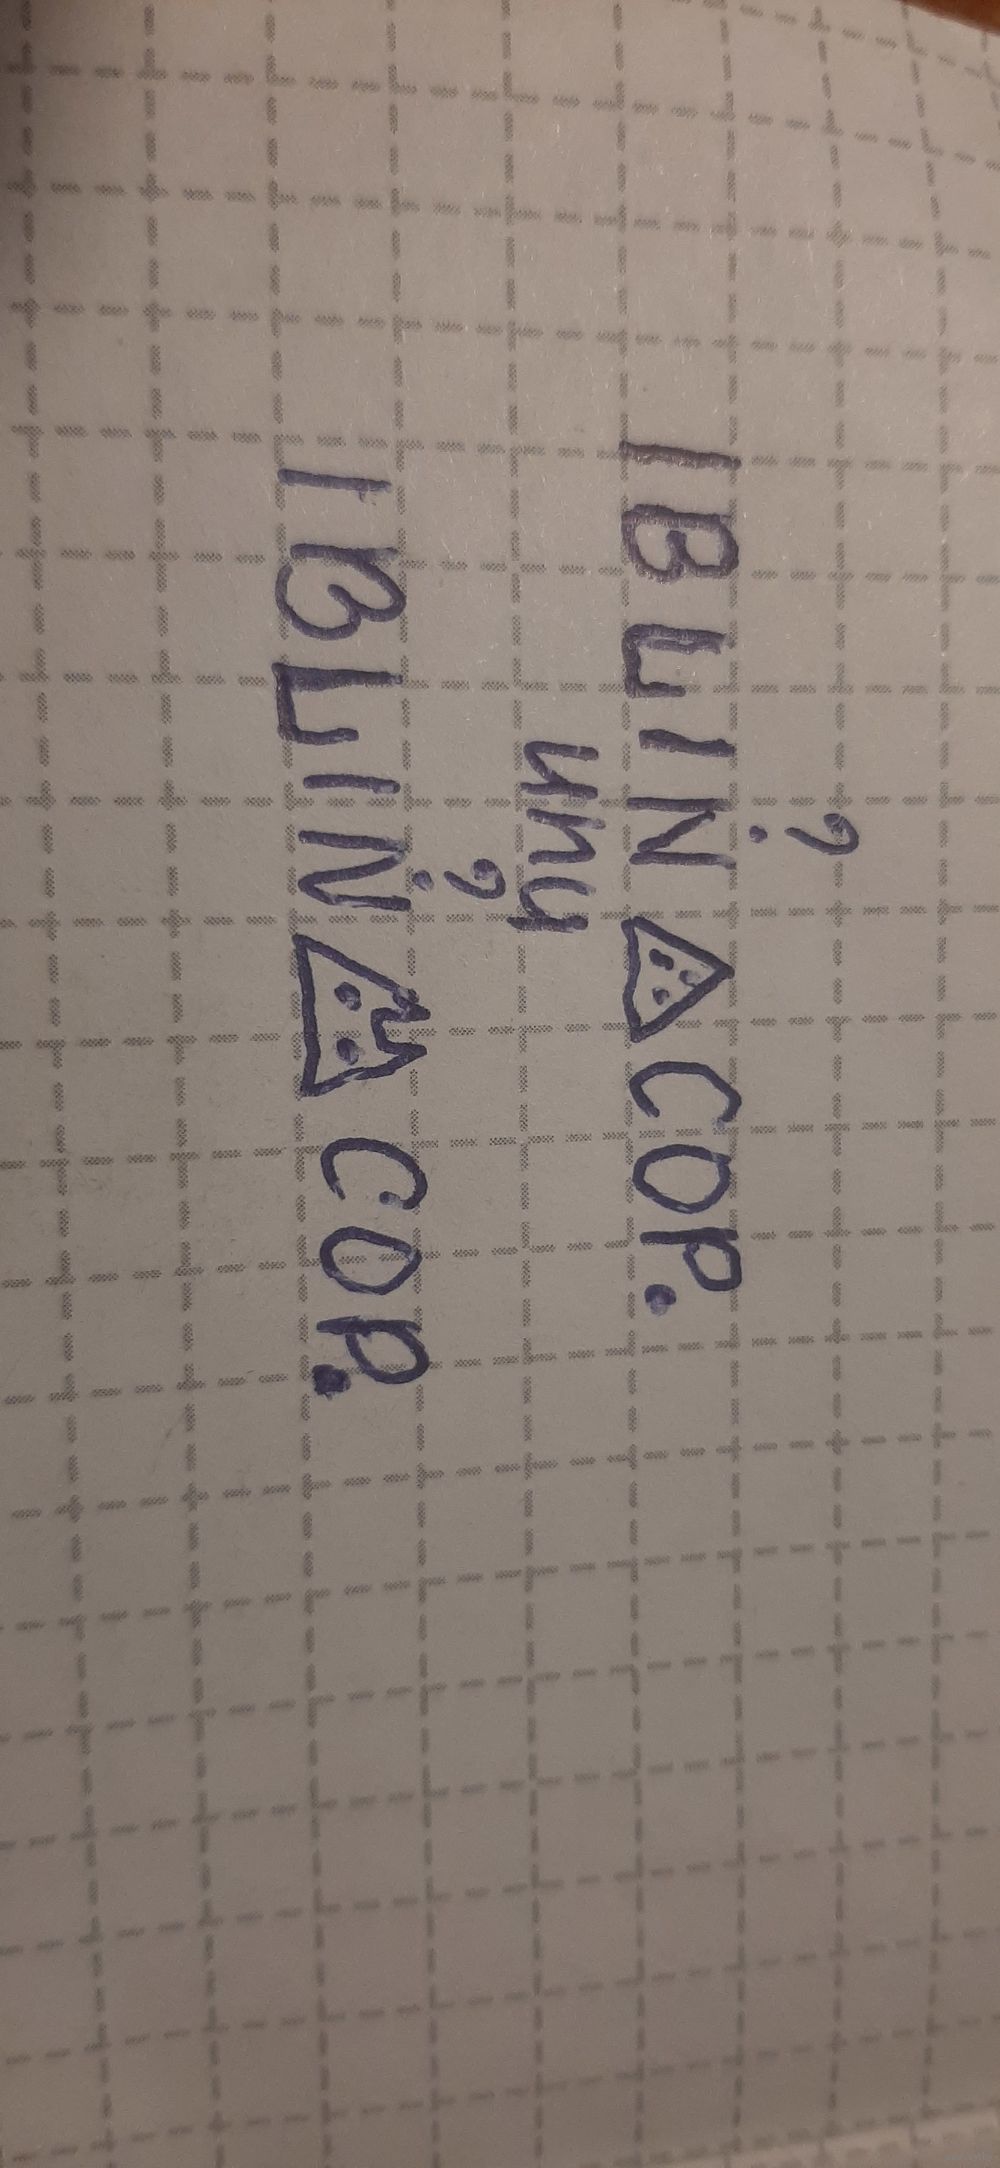 ?
IBLIN COP.
или
?
IBLIN COP.